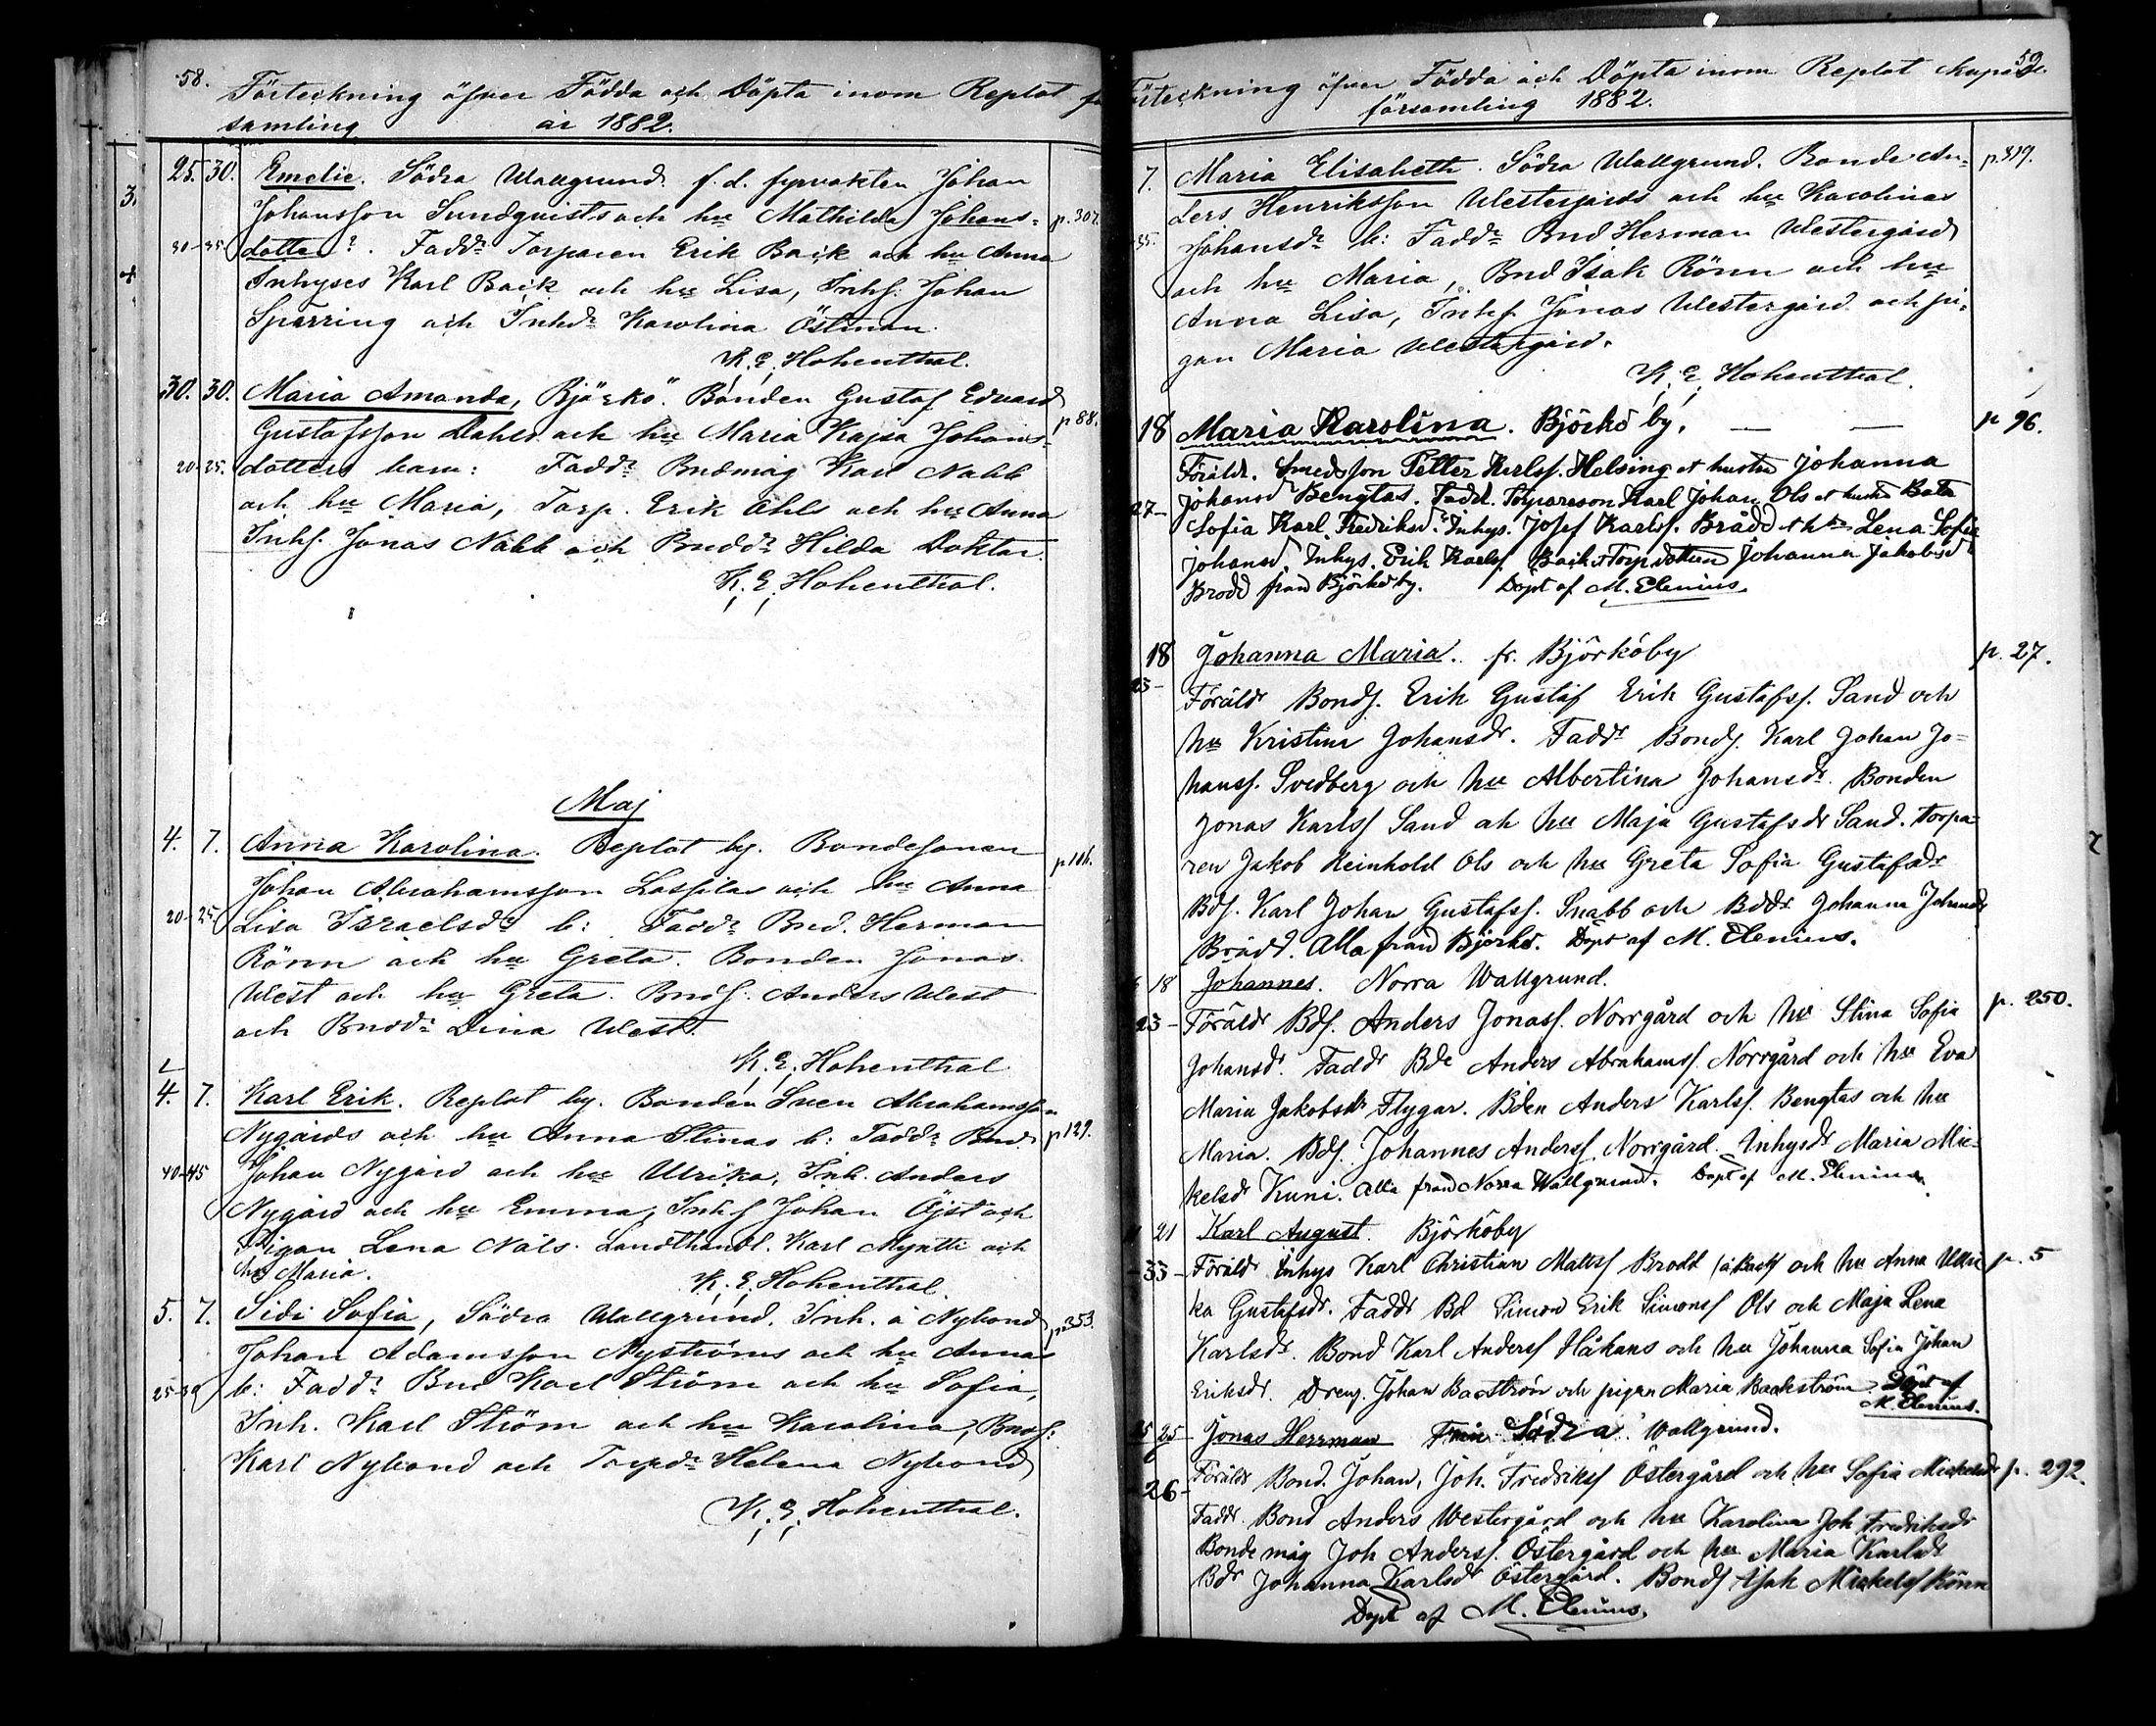 58.
Förteckning öfver Födda och Döpta inom Replot
samling år 1882.
25. 30. Emelie. Södra Wallgrund. f. d. fyrvakten Johan
Johansson Sundquists och hu Mathilda Johans- p. 307.
30-35 dotter?. Faddr Torparen Erik Back och hu Anna
Inhyses Karl Back och hu Lisa, Inhs. Johan
Sparring och Inhdr Karolina Östman.
K. E. Hohenthal.
30. 30. Maria Amanda, Björkö. Bonden Gustaf Edvard
Gustafsson Dahls och hu Maria Kajsa Johans- p 88.
20-25 dotters barn: Faddr Bndmåg Karl Nabb
och hu Maria, Torp. Erik Ahls och hu Anna
Inhs. Jonas Nabb och Bnddr Hilda Doktar.
K. E. Hohenthal.
Maj
4. 7. Anna Karolina. Replot by. Bondesonen
Johan Abrahamsson Lassilas och hu Anna p 116.
20-25 Lisa Israelsdr b: Faddr Bnd. Herman
Rönn och hu Greta. Bonden Jonas
West och hu Greta. Bnds. Anders West
och Bnddr Dina West.
K. E. Hohenthal
4. 7. Karl Erik. Replot by. Bonden Sven Abrahamsson
Nygårds och hu Anna Stinas b: Faddr Bnd. p 129.
40-45 Johan Nygård och hu Ulrika, Inh. Anders
Nygård och hu Emma, Inhs Johan Öjst och
Pigan Lena Näls. Landthandl. Karl Myntti och
hu Maria.
K. E. Hohenthal.
5. 7. Sidi Sofia, Södra Wallgrund. Inh. å Nybond p. 353.
Johan Adamsson Nyströms och hu Annas
25-30 b: Faddr Bnd Karl Ström och hu Sofia,
Inh. Karl Ström och hu Karolina, Bnds:
Karl Nybond och Torpdr Helena Nybond
K. E. Hohenthal.
59.
Förteckning öfver Födda och Döpta inom Replot kapell
församling 1882.
7. Maria Elisabeth. Södra Wallgrund. Bonde An- p. 319.
ders Henriksson Westergårds och hu Karolinas
35. Johansdr b: Faddr Bnd Herman Westergård
och hu Maria, Bnd Isak Rönn och hu
Anna Lisa, Inhs Jonas Westergård och pi-
gan Maria Westergård.
K. E. Hohenthal.
18 Maria Karolina. Björkö by. — — p 96.
Föräldr. Smedsson Petter Karlss. Helsing et hustru Johanna
27- Johansdr Bengtas. Fadd. Torpareson Karl Johan Ols et hustru Bata
Sofia Karl. Fredriksd. Inhys. Josef Karlss. Brådd et h Lena Sofia
Johansd. Inhys. Erik Karlss. Back et Torpdottren Johanna Jakobsd
Brodd från Björkö by. Döpt af M. Elenius.
18 Johanna Maria. fr. Björköby p. 27.
23- Föräldr Bonds. Erik Gustaf Erik Gustafss. Sand och
hu Kristina Johansdr. Faddr Bonds. Karl Johan Jo-
hanss. Svedberg och hu Albertina Johansdr. Bonden
Jonas Karlss Sand och hu Maja Gustafsdr Sand. Torpa-
ren Jakob Reinhold Ols och hu Greta Sofia Gustafsdr
Bds. Karl Johan Gustafss. Snabb och Bddr Johanna Johansdr
Brådd. Alla från Björkö. Döpt af M. Elenius.
18 Johannes. Norra Wallgrund.
23- Föräldr Bds. Anders Jonass. Norrgård och hu Stina Sofia p. 250.
Johansdr. Faddr Bde Anders Abrahamss. Norrgård och hu Eva
Maria Jakobsdr Flygar. Bden Anders Karlss. Bengtas och hu
Maria. Bds. Johannes Anderss. Norrgård. Inhysdr Maria Mic-
kelsdr Kuni. Alla från Norra Wallgrund. Döpt af M. Elenius.
21 Karl August. Björköby
33- Föräldr Inhys Karl Christian Matss Brodd (à Back) och hu Anna Ulri p. 5
ka Gustafsdr. Faddr Bd Simon Erik Simonss Ols och Maja Lena
Karlsdr. Bond Karl Anderss Håkans och hu Johanna Sofia Johan
Eriksdr. Dreng. Johan Backström och pigan Maria Backström. Döpt af
M. Elenius.
25 25 Jonas Herrman Från Södra Wallgrund.
26- Föräldr Bond. Johan, Joh. Fredrikss Östergård och hu Sofia Mickelsdr p. 292.
Faddr. Bond Anders Westergård och hu Karolina Joh Fredriksdr
Bonde måg Joh Anderss. Östergård och hu Maria Karlsdr
Bdr Johanna Karlsdr Östergård. Bonds Isak Mickelss Rönn
Döpt af M. Elenius.